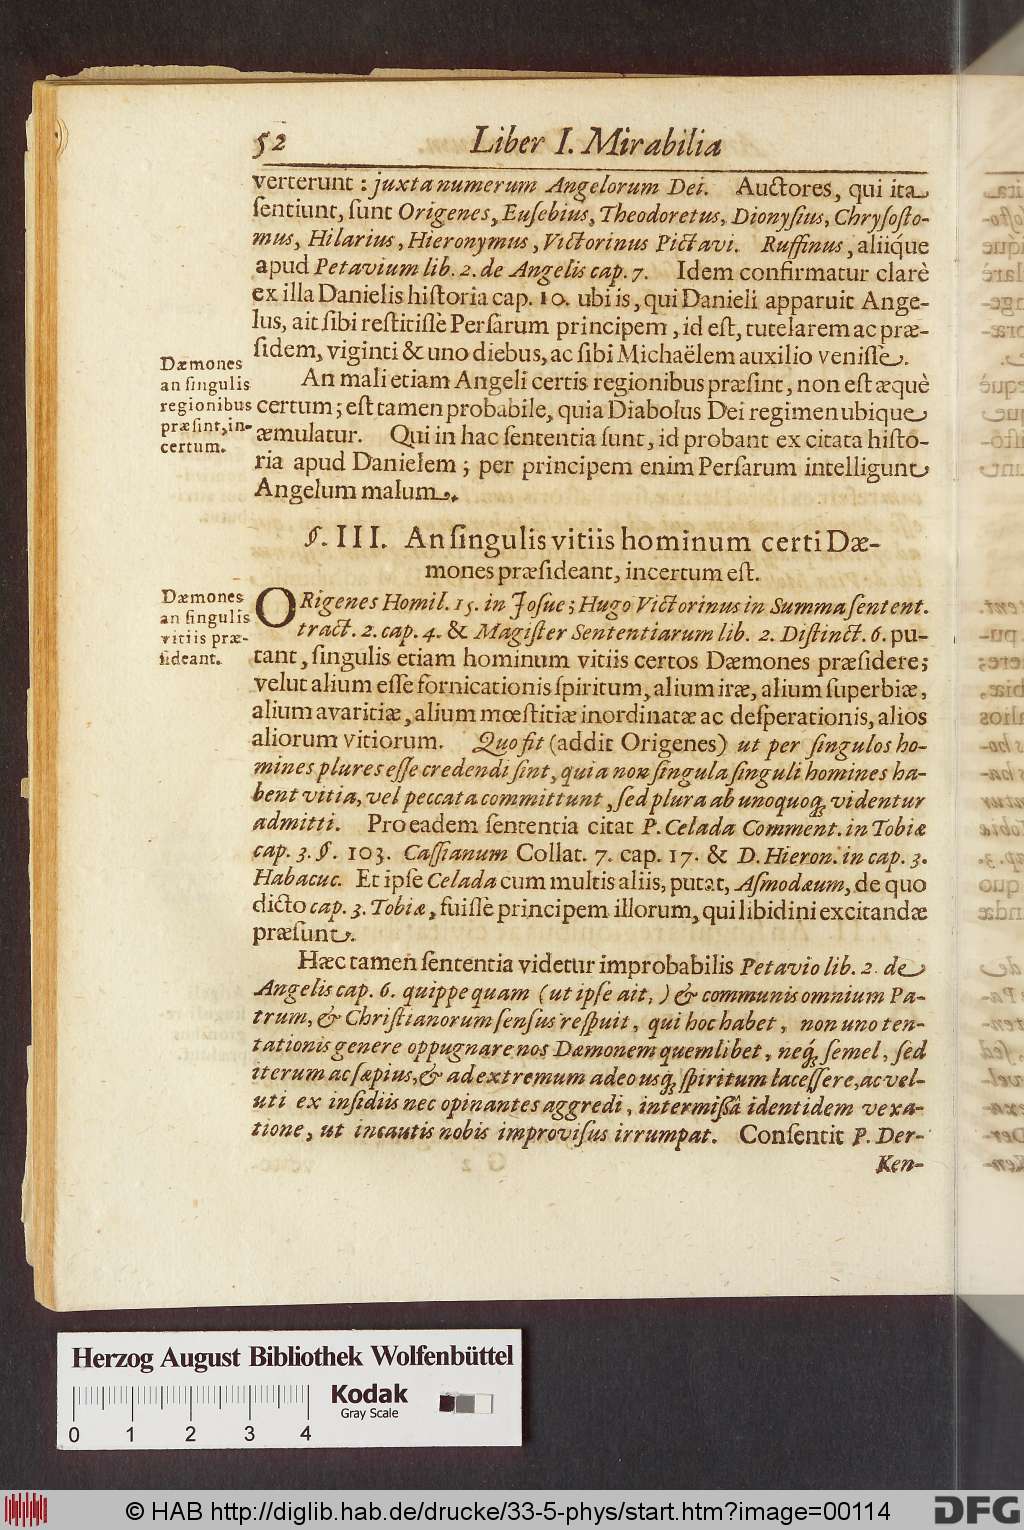 52 Liber I. Mirabilia
verterunt : juxta numerum Angelorum Dei. Auctores, qui ita
ſentiunt, ſunt Origenes, Euſebius, Theodoretus, Dionyſius, Chryſoſto-
mus, Hilarius, Hieronymus, Victorinus Pictavi. Ruffinus, aliíque
apud Petavium lib. 2. de Angelis cap. 7. Idem confirmatur clarè
ex illa Danielis hiſtoria cap. 10. ubi is, qui Danieli apparuit Ange-
lus, ait ſibi reſtitiſſe Perſarum principem, id eſt, tutelarem ac præ-
ſidem, viginti & uno diebus, ac ſibi Michaëlem auxilio veniſſe.
Dæmones
an ſingulis
regionibus
præſint, in-
certum.
An mali etiam Angeli certis regionibus præſint, non eſt æquè
certum; eſt tamen probabile, quia Diabolus Dei regimen ubique
æmulatur. Qui in hac ſententia ſunt, id probant ex citata hiſto-
ria apud Danielem; per principem enim Perſarum intelligunt
Angelum malum.
§. III. An ſingulis vitiis hominum certi Dæ-
mones præſideant, incertum eſt.
Dæmones
an ſingulis
vitiis præ-
ſideant.
ORigenes Homil. 15. in Joſue; Hugo Victorinus in Summa ſentent.
tract. 2. cap. 4. & Magiſter Sententiarum lib. 2. Diſtinct. 6. pu-
tant, ſingulis etiam hominum vitiis certos Dæmones præſidere;
velut alium eſſe fornicationis ſpiritum, alium iræ, alium ſuperbiæ,
alium avaritiæ, alium mœſtitiæ inordinatæ ac deſperationis, alios
aliorum vitiorum. Quo fit (addit Origenes) ut per ſingulos ho-
mines plures eſſe credendi ſint, quia non ſingula ſinguli homines ha-
bent vitia, vel peccata committunt, ſed plura ab unoquoq; videntur
admitti. Pro eadem ſententia citat P. Celada Comment. in Tobiæ
cap. 3. §. 103. Caſſianum Collat. 7. cap. 17. & D. Hieron. in cap. 3.
Habacuc. Et ipſe Celada cum multis aliis, putat, Aſmodæum, de quo
dicto cap. 3. Tobiæ, fuiſſe principem illorum, qui libidini excitandæ
præſunt.
Hæc tamen ſententia videtur improbabilis Petavio lib. 2. de
Angelis cap. 6. quippe quam (ut ipſe ait,) & communis omnium Pa-
trum, & Chriſtianorum ſenſus reſpuit, qui hoc habet, non uno ten-
tationis genere oppugnare nos Dæmonem quemlibet, neq; ſemel, ſed
iterum ac ſæpius, & ad extremum adeo usq; ſpiritum laceſſere, ac vel-
uti ex inſidiis nec opinantes aggredi, intermiſſâ identidem vexa-
tione, ut incautis nobis improviſus irrumpat. Conſentit P. Der-
Ken-
Herzog August Bibliothek Wolfenbüttel
Kodak
Gray Scale
0 1 2 3 4
© HAB http://diglib.hab.de/drucke/33-5-phys/start.htm?image=00114
DFG